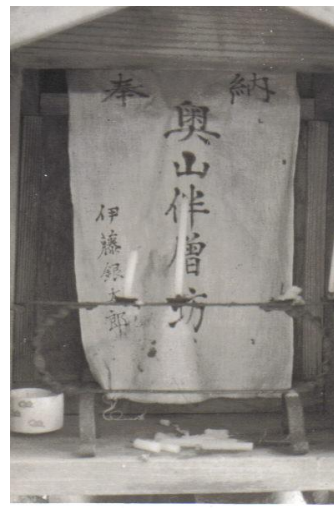 奉納
奥山伴僧坊
伊藤銀太郎